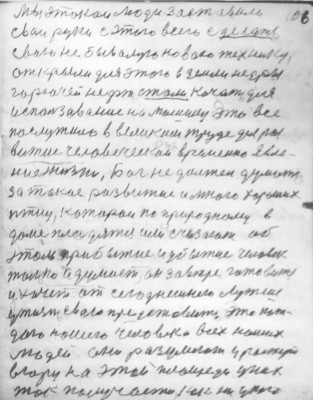 Мы этокаи люди заставили 106
Сваи руки с этого всего сделать
Свого не бывалую новаю технику,
открыли для этого в земли недры
горючей нефти, стали Качать для
использавание на машину Это все
послужило в великам труде для раз
витие человеческай временно Явле-
ние жизни, Бог не должен думать
за такое развитие и много хароших
птиц, катораи по природному в
доме плодятся или сказать об
этом прибытие и убытие человек
только и думает он завтре готовится
и хочет от сегоднешнего лучше
свого представить, Это каж-
дого нашего человека всех наших
людей они разумеют и растут
вгору на этой площеди у них
так получается